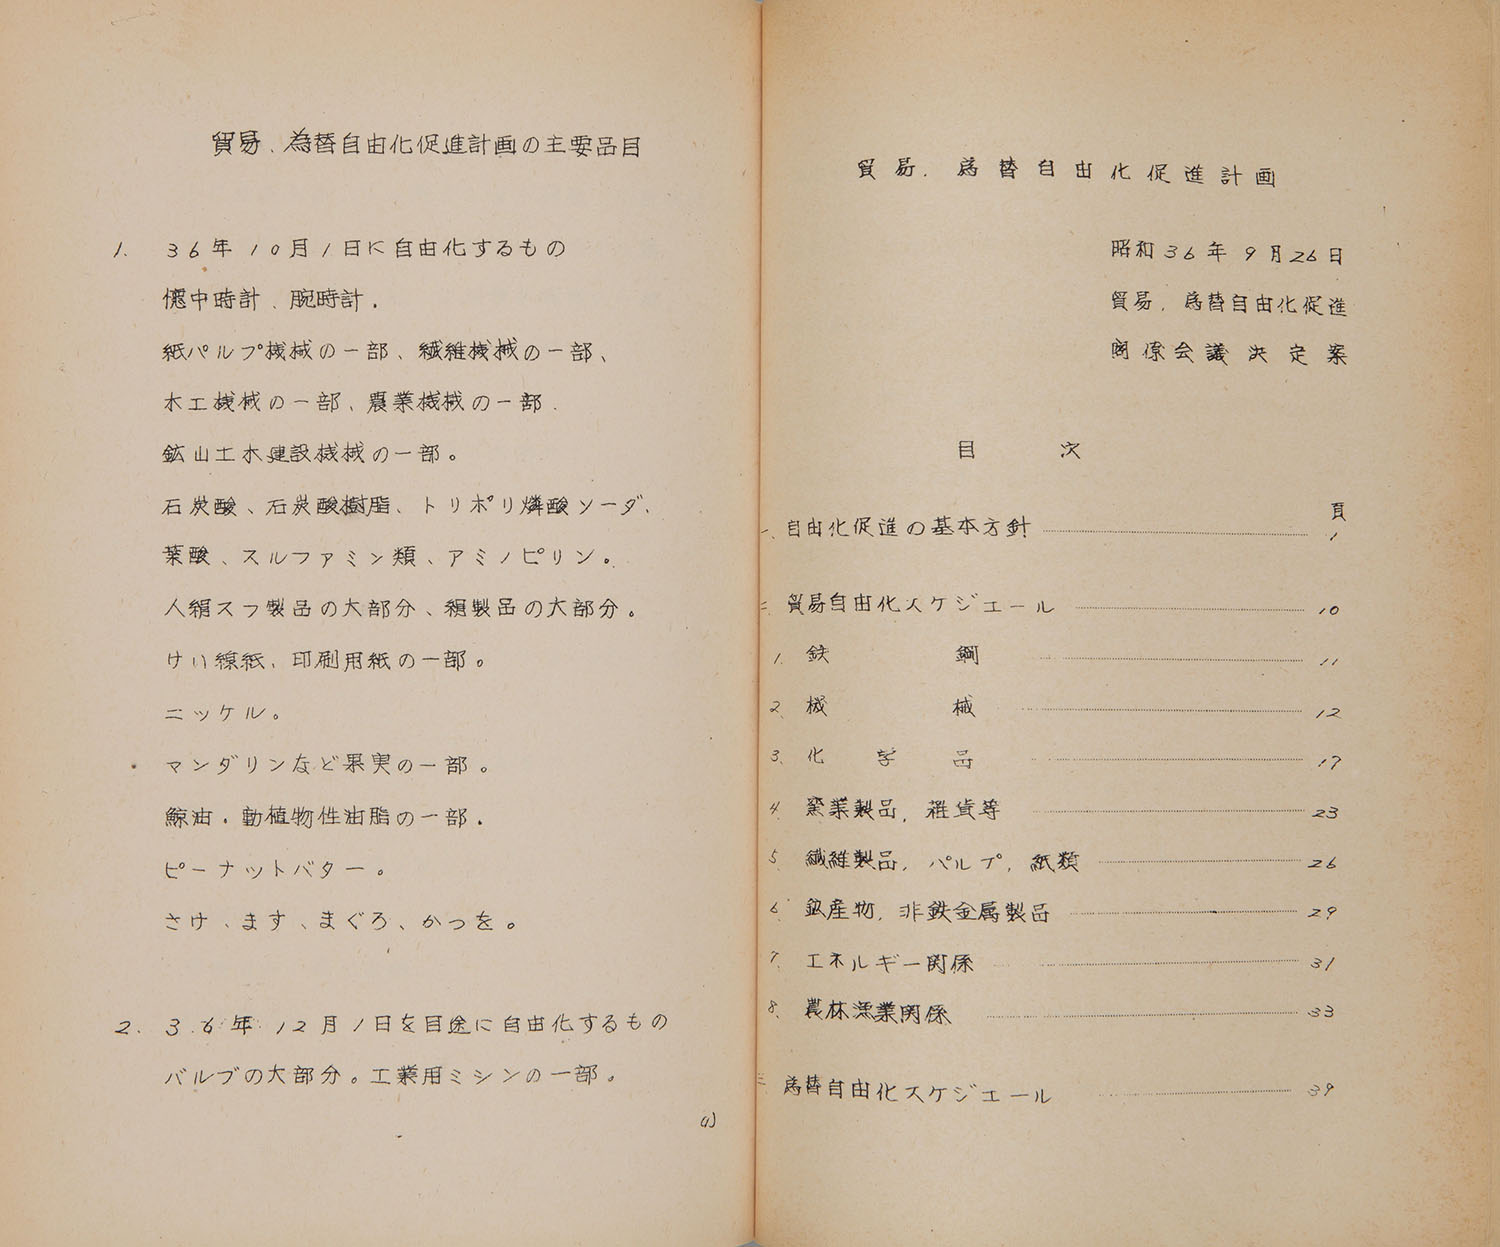 貿易、為替自由化促進計画の主要品目
1. 36年10月1日に自由化するもの
懐中時計、腕時計.
紙パルプ機械の一部、繊維機械の一部、
木工機械の一部、農業機械の一部.
鉱山土木建設機械の一部。
石炭酸、石炭酸樹脂、トリポリ燐酸ソーダ、
葉酸、スルファミン類、アミノピリン。
人絹スフ製品の大部分、絹製品の大部分。
けい線紙、印刷用紙の一部。
ニッケル。
マンダリンなど果実の一部。
鯨油.動植物性油脂の一部.
ピーナットバター。
さけ、ます、まぐろ、かつを。
2. 36年12月1日を目途に自由化するもの
バルブの大部分。工業用ミシンの一部。
(1)
貿易.為替自由化促進計画
昭和36年9月26日
貿易.為替自由化促進
関係会議決定案
目次
頁
一、自由化促進の基本方針 1
二、貿易自由化スケジエール 10
1、鉄鋼 11
2、機械 12
3、化学品 17
4、窯業製品,雑貨等 23
5、繊維製品,パルプ,紙類 26
6、鉱産物,非鉄金属製品 29
7、エネルギー関係 31
8、農林漁業関係 33
三、為替自由化スケジエール 39